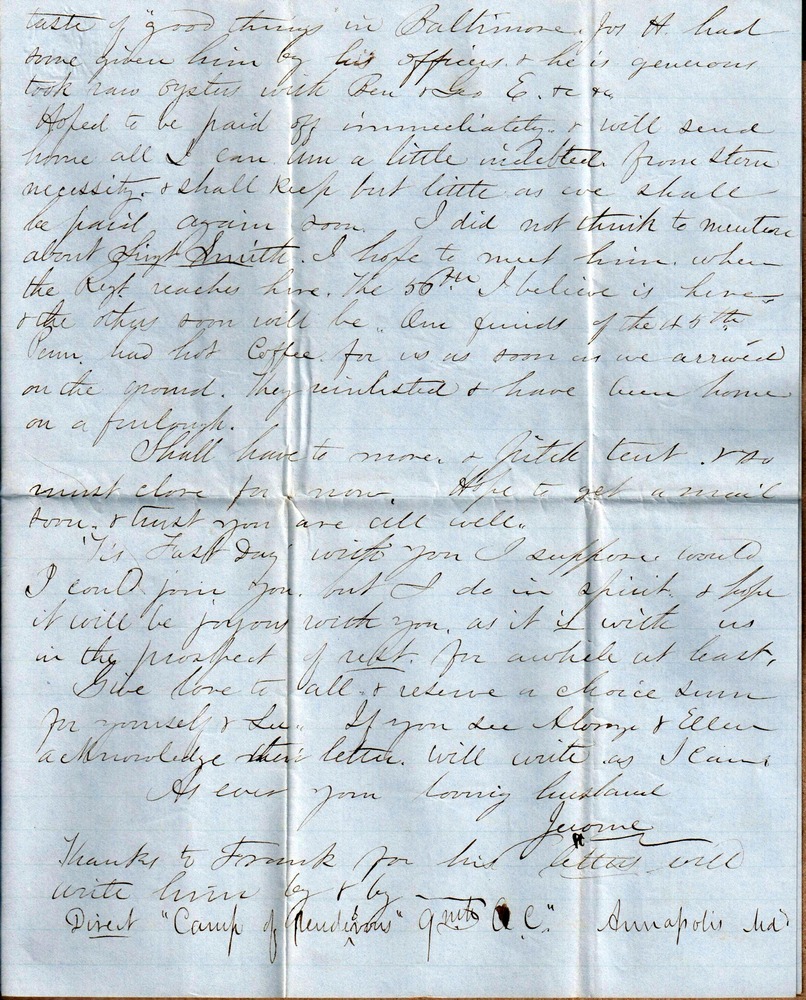 taste of "good things" in Baltimore. Jos H. had
some given him by his officers & he is generous
took raw oysters with Ben & Geo E. &c &c.
Hoped to be paid off immediately. & will send
home all I can. Am a little indebted from stern
necessity. & shall keep but little as we shall
be paid again soon. I did not think to mention
about Smith. I hope to meet him. when
the Regt. reaches here. The 56th I believe is here
& the others soon will be. Our friends of the 45th
Penn. had hot Coffee for us as soon as we arrived
on the ground. They reinlisted & have been home
on a furlough.
Shall have to move. & pitch tent. & so
must close for now. Hope to get a mail
soon. & trust you are all well.
'Tis Fast Day with you I suppose. would
I could join you. but I do in spirit. & hope
it will be joyous with you. as it is with us
in the prospect of rest. for awhile at least.
Give love to all. & reserve a choice sum
for yourself & If you see Alonzo & Ellen
acknowledge their letter. will write as I can.
As ever your loving husband
Jerome
Thanks to Frank for his letter will
write him by & by
Direct "Camp of Rendezvous" 9mth A C." Annapolis Md